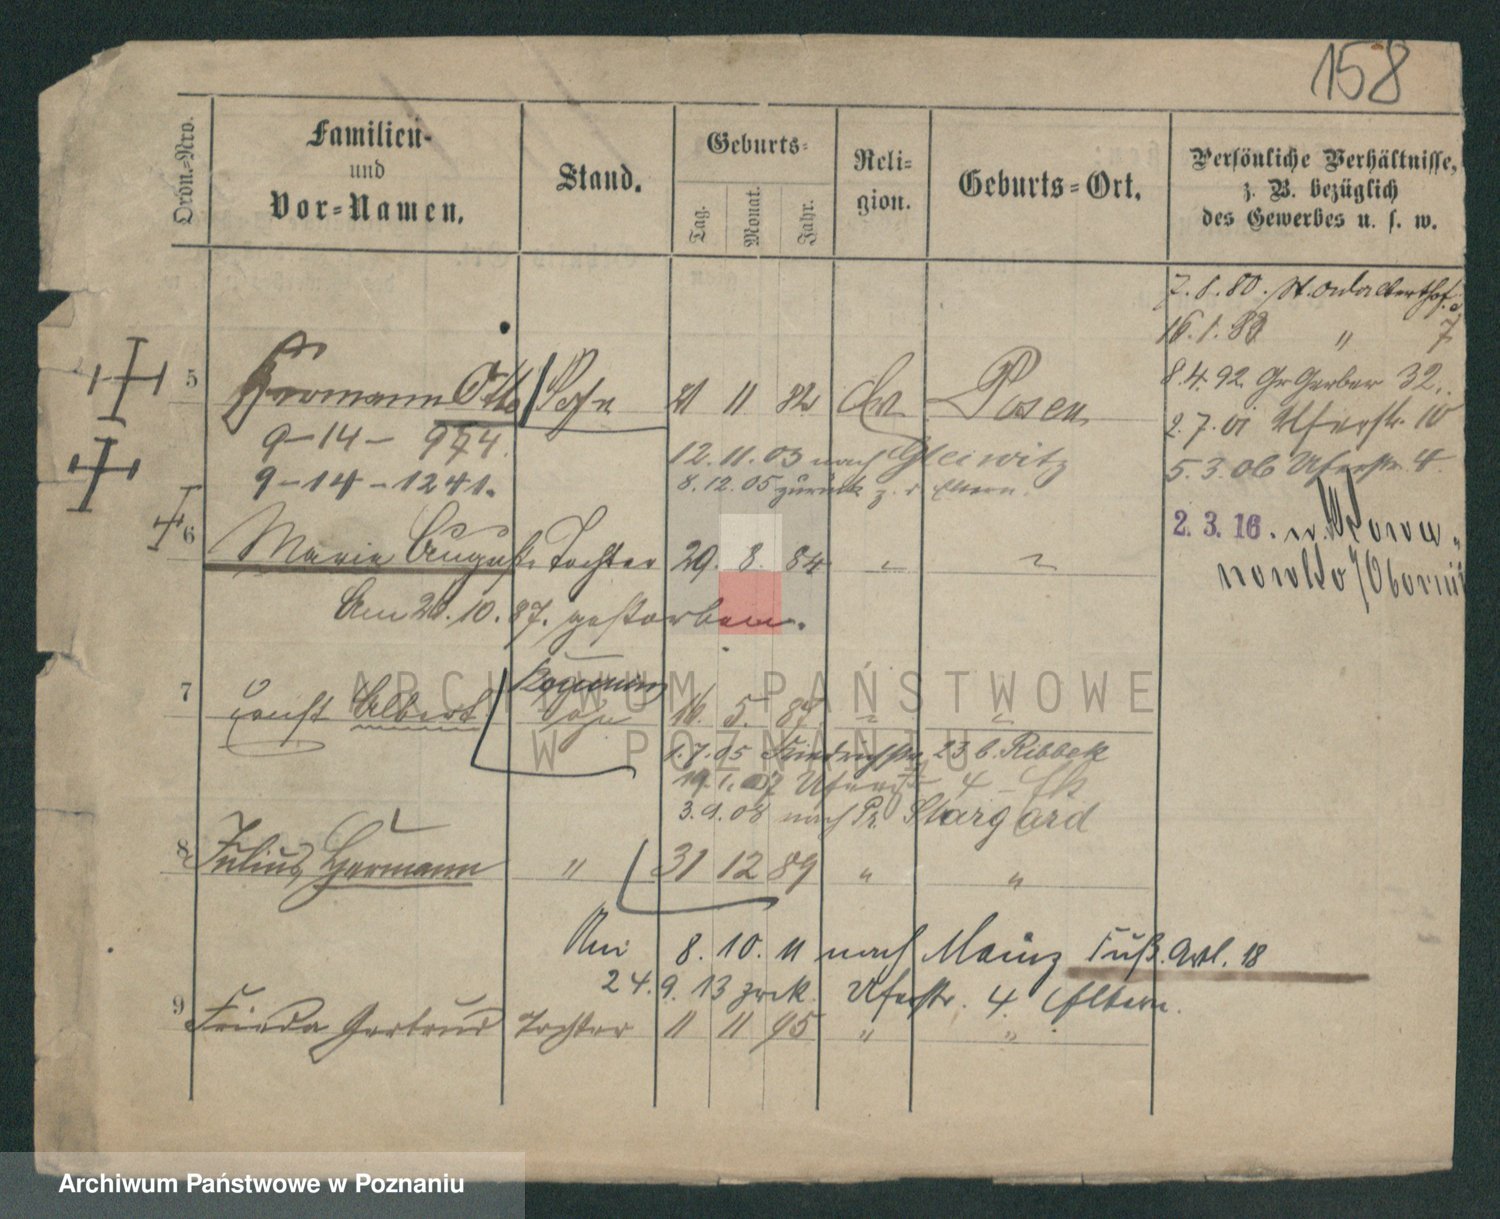 158
Ordn.-Nro.
Familien-
und
Vor-Namen.
Stand.
Geburts-
Tag.
Monat.
Jahr.
Reli-
gion.
Geburts-Ort.
Persönliche Verhältnisse,
z. B. bezüglich
des Gewerbes u. s. w.
7.8.80. St. Adalbertstr.
16.1.88 " 7
8.4.92 Gr Gerber 32.
2.7.01 Uferstr. 10
5.3.06 Uferstr. 4
2.3.16. n.
5 Hermann Otto Sohn 21 11 82 Ev Posen
9-14-974.
12.11.03 nach Gleiwitz
9-14-1241.
8.12.05 zurück z. d. Eltern.
6 Marie Auguste Tochter 29. 8. 84 " "
Am 28.10.87. gestorben.
7 Ernst Albert Sohn 16. 5. 87. " "
1.7.05 Friedrichstr. 23 b. Ribbek
19.1.07 Uferstr. 4
3.9.08 nach Pr. Stargard
8 Julius Hermann " 31 12 89 " "
Am 8.10.11 nach Mainz Fuß. Artl. 18
24.9.13 zrck. Uferstr. 4. Eltern.
9 Frieda Gertrud Tochter 11 11 95 " "
ARCHIWUM PAŃSTWOWE
W POZNANIU
Archiwum Państwowe w Poznaniu